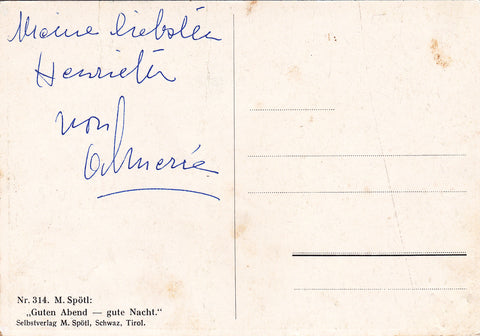 Meine liebsten
Henrietn
von
Almeria
Nr. 314. M. Spötl:
„Guten Abend — gute Nacht.“
Selbstverlag M. Spötl, Schwaz, Tirol.